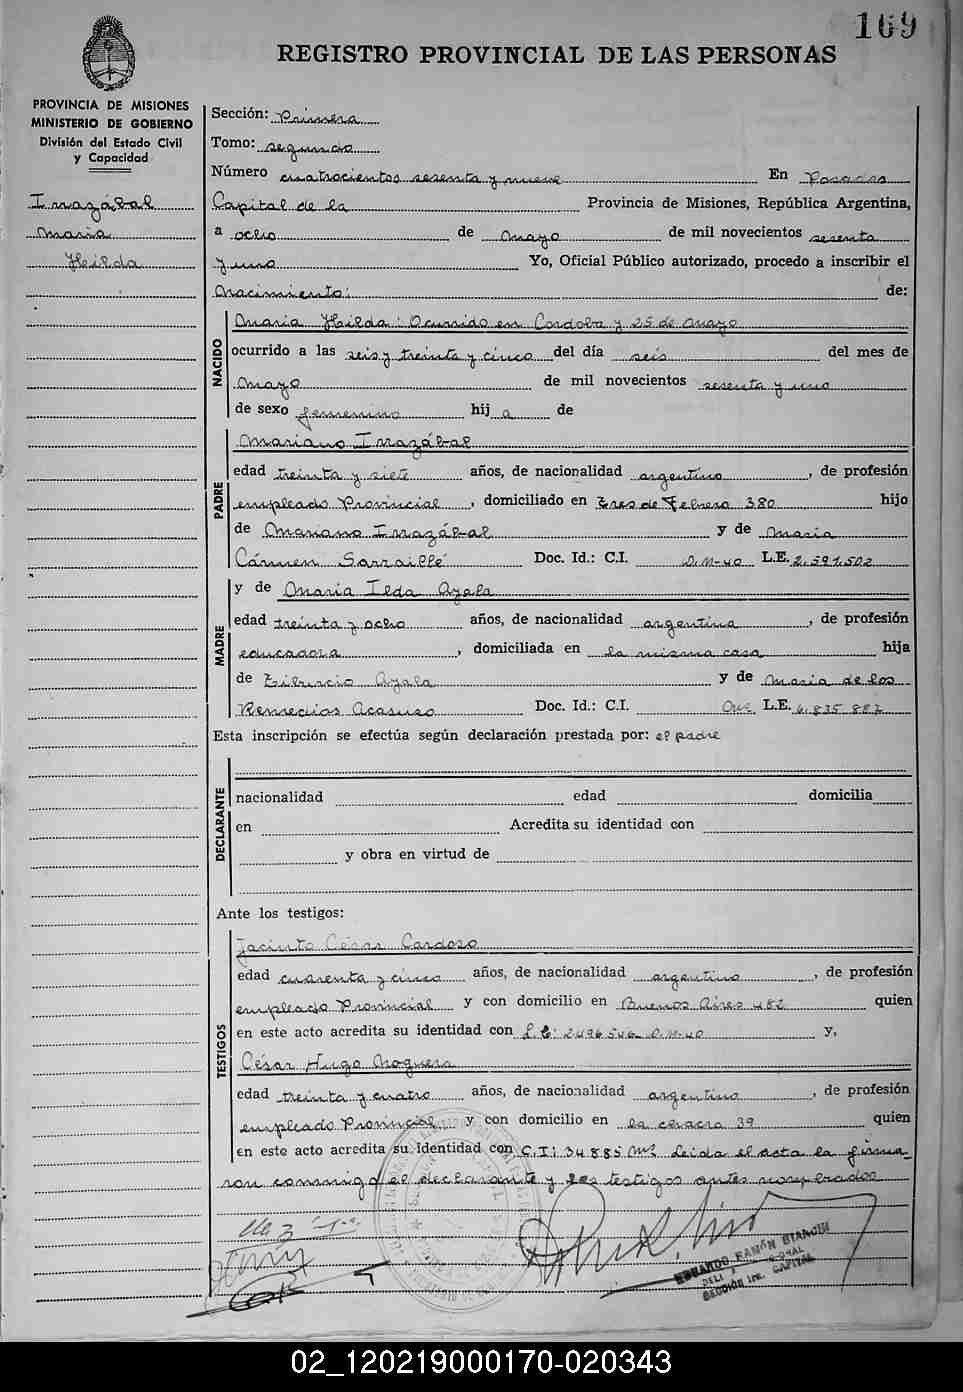 169
REGISTRO PROVINCIAL DE LAS PERSONAS
PROVINCIA DE MISIONES
MINISTERIO DE GOBIERNO
División del Estado Civil
y Capacidad
Irrazábal
Maria
Hilda
Sección: Primera
Tomo: segundo
Número cuatrocientos sesenta y nueve En Posadas
Capital de la Provincia de Misiones, República Argentina,
a ocho de Mayo de mil novecientos sesenta
y uno Yo, Oficial Público autorizado, procedo a inscribir el
Nacimiento: de:
NACIDO
Maria Hilda: Ocurrido en Cordoba y 25 de Mayo
ocurrido a las seis y treinta y cinco del día seis del mes de
Mayo de mil novecientos sesenta y uno
de sexo femenino hij a de
PADRE
Mariano Irrazábal
edad treinta y siete años, de nacionalidad argentino, de profesión
empleado Provincial, domiciliado en Tres de Febrero 380 hijo
de Mariano Irrazábal y de Maria
Cármen Sarraillé Doc. Id.: C.I. D.M-40 L.E. 2.591.502
MADRE
y de Maria Ilda Ayala
edad treinta y ocho años, de nacionalidad argentina, de profesión
educadora, domiciliada en la misma casa hija
de Tiburcio Ayala y de Maria de los
Remedios Acasuso Doc. Id.: C.I. L.E. 6.835.887
Esta inscripción se efectúa según declaración prestada por: el padre
DECLARANTE
nacionalidad edad domicilia
en Acredita su identidad con
y obra en virtud de
Ante los testigos:
TESTIGOS
Jacinto César Cardozo
edad cuarenta y cinco años, de nacionalidad argentino, de profesión
empleado Provincial y con domicilio en Buenos Aires 482 quien
en este acto acredita su identidad con L.E: 2496546 D.M-40 y,
César Hugo Noguera
edad treinta y cuatro años, de nacionalidad argentino, de profesión
empleado Provincial y con domicilio en la chacra 39 quien
en este acto acredita su identidad con C.I: 34885 Ms. Leida el acta la firma-
ron conmigo el declarante y los testigos antes nombrados
EDUARDO RAMÓN BIANCHI
SECCIÓN 1ra. CAPITAL
02_120219000170-020343